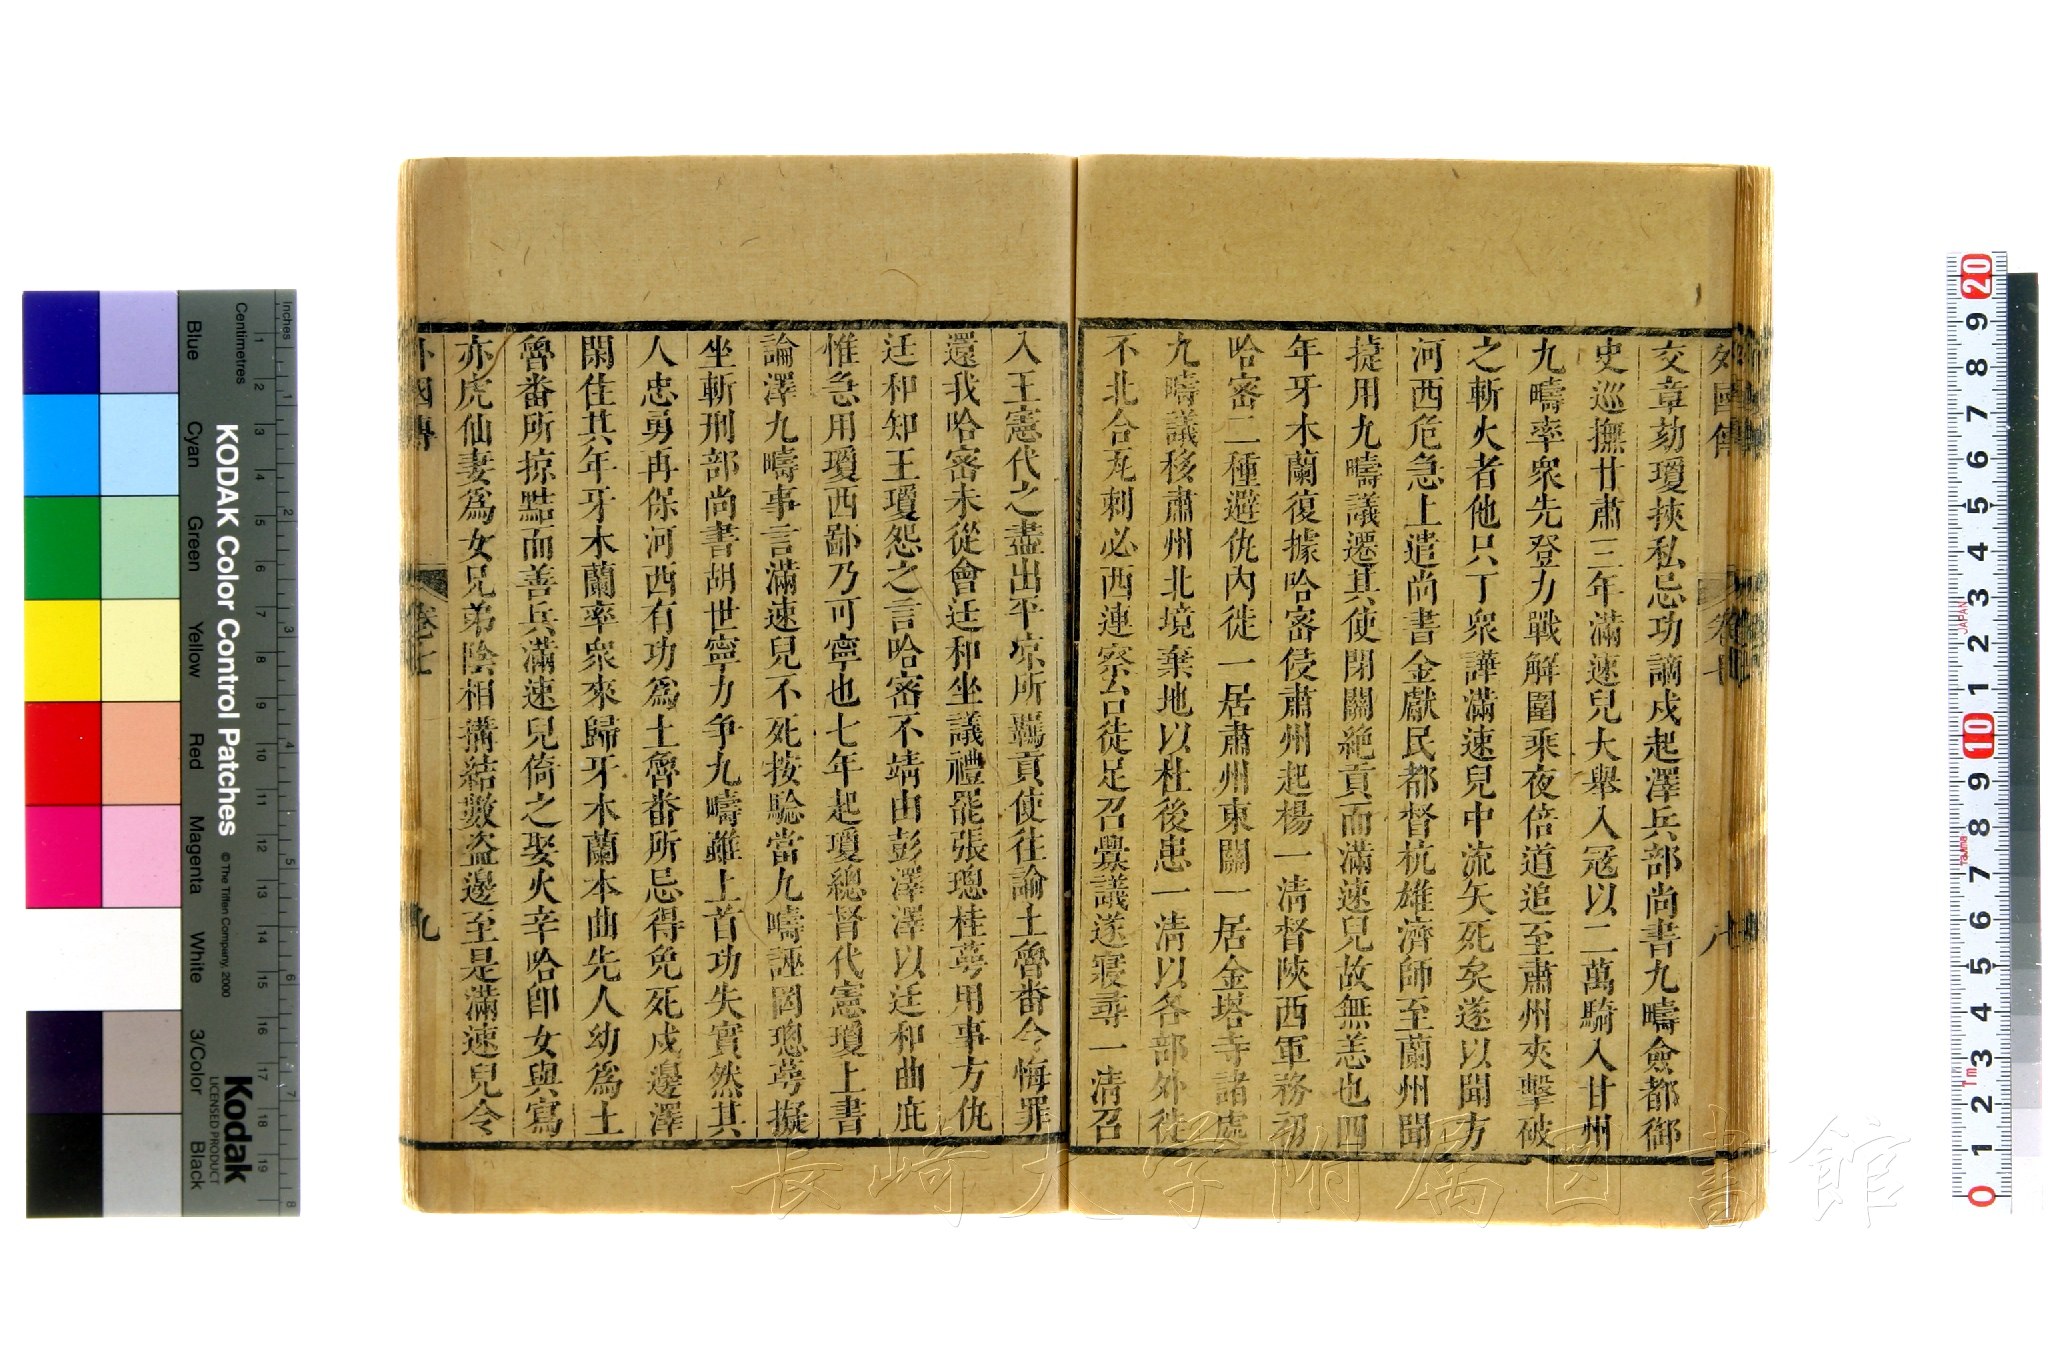 外國傳 卷七 八
交章劾瓊挾私忌功謫戍起澤兵部尚書九疇僉都御
史巡撫甘肅三年滿速兒大舉入寇以二萬騎入甘州
九疇率衆先登力戰解圍乘夜倍道追至肅州夾擊破
之斬火者他只丁衆譁滿速兒中流矢死矣遂以聞方
河西危急上遣尚書金獻民都督杭雄濟師至蘭州聞
捷用九疇議遷其使閉關絶貢而滿速兒故無恙也四
年牙木蘭復據哈密侵肅州起楊一清督陝西軍務初
哈密二種避仇內徙一居肅州東關一居金塔寺諸處
九疇議移肅州北境棄地以杜後患一清以各部外徙
不北合瓦剌必西連察台徒足召釁議遂寢尋一清召
入王憲代之盡出平凉所羈貢使往諭土魯番令悔罪
還我哈密未從會廷和坐議禮罷張璁桂萼用事方仇
廷和知王瓊怨之言哈密不靖由彭澤澤以廷和曲庇
惟急用瓊西鄙乃可寧也七年起瓊總督代憲瓊上書
論澤九疇事言滿速兒不死按騐當九疇誣罔璁萼擬
坐斬刑部尚書胡世寧力争九疇雖上首功失實然其
人忠勇再保河西有功爲土魯番所忌得免死戍邊澤
閑住其年牙木蘭率衆來歸牙木蘭本曲先人幼爲土
魯番所掠黠而善兵滿速兒倚之娶火辛哈卽女與寫
亦虎仙妻爲女兄弟陰相搆結數盜邊至是滿速兒令
外國傳 卷七 九
KODAK Color Control Patches
© The Tiffen Company, 2000
Kodak
LICENSED PRODUCT
Inches
Centimetres
Blue Cyan Green Yellow Red Magenta White 3/Color Black
長崎大学附属図書館